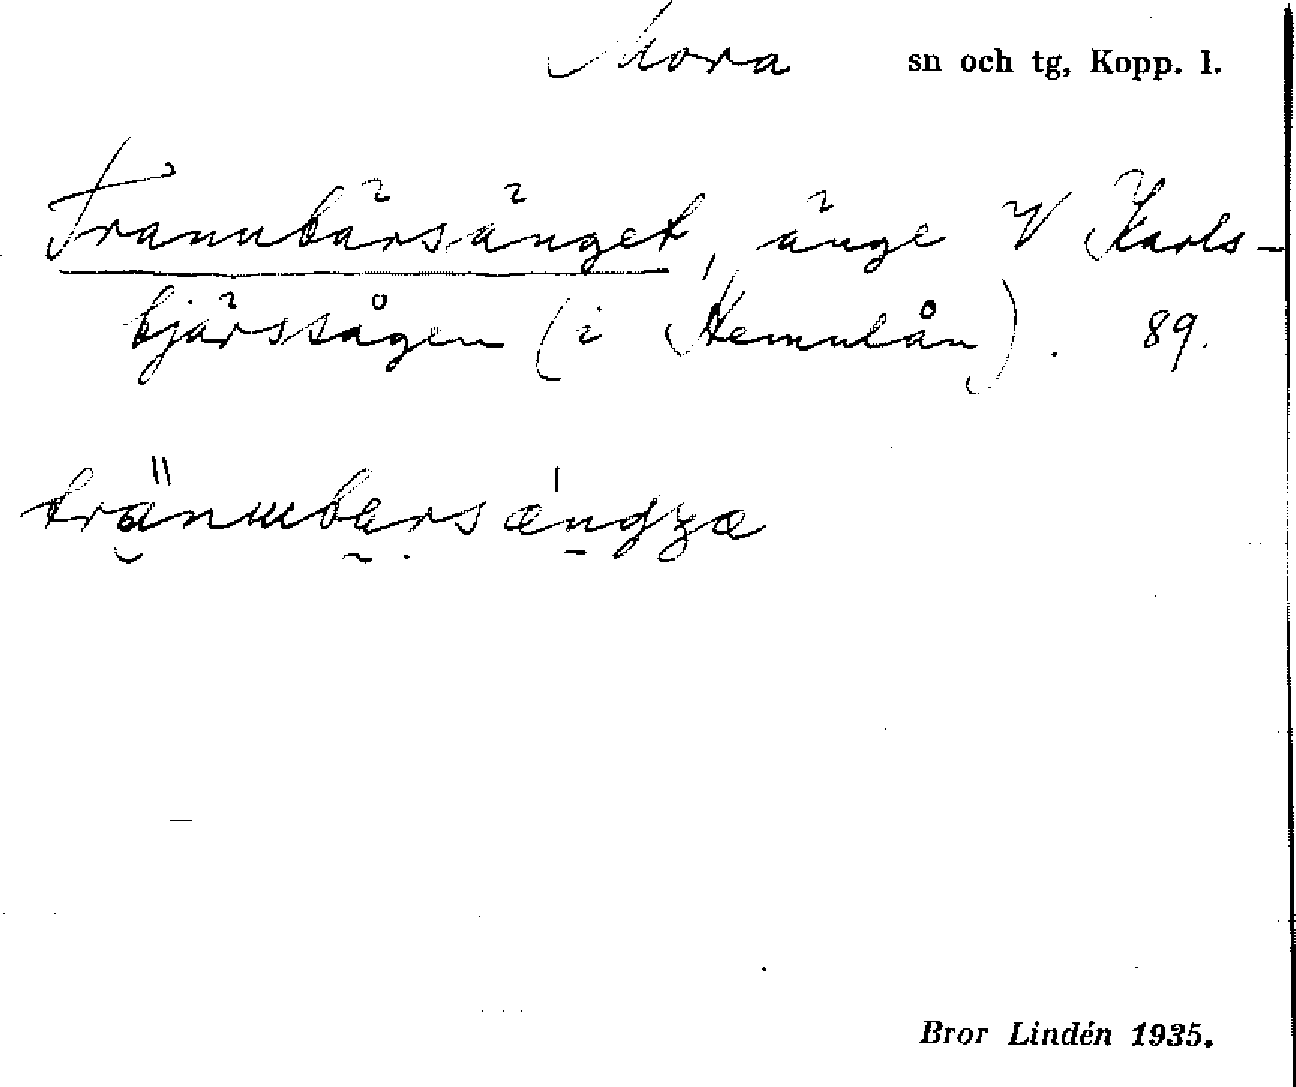 Mora sn och tg, Kopp. l.
Trannbärsänget, änge V Karls-
bjärssågen (i Hemulån). 89.
Bror Lindén 1935.